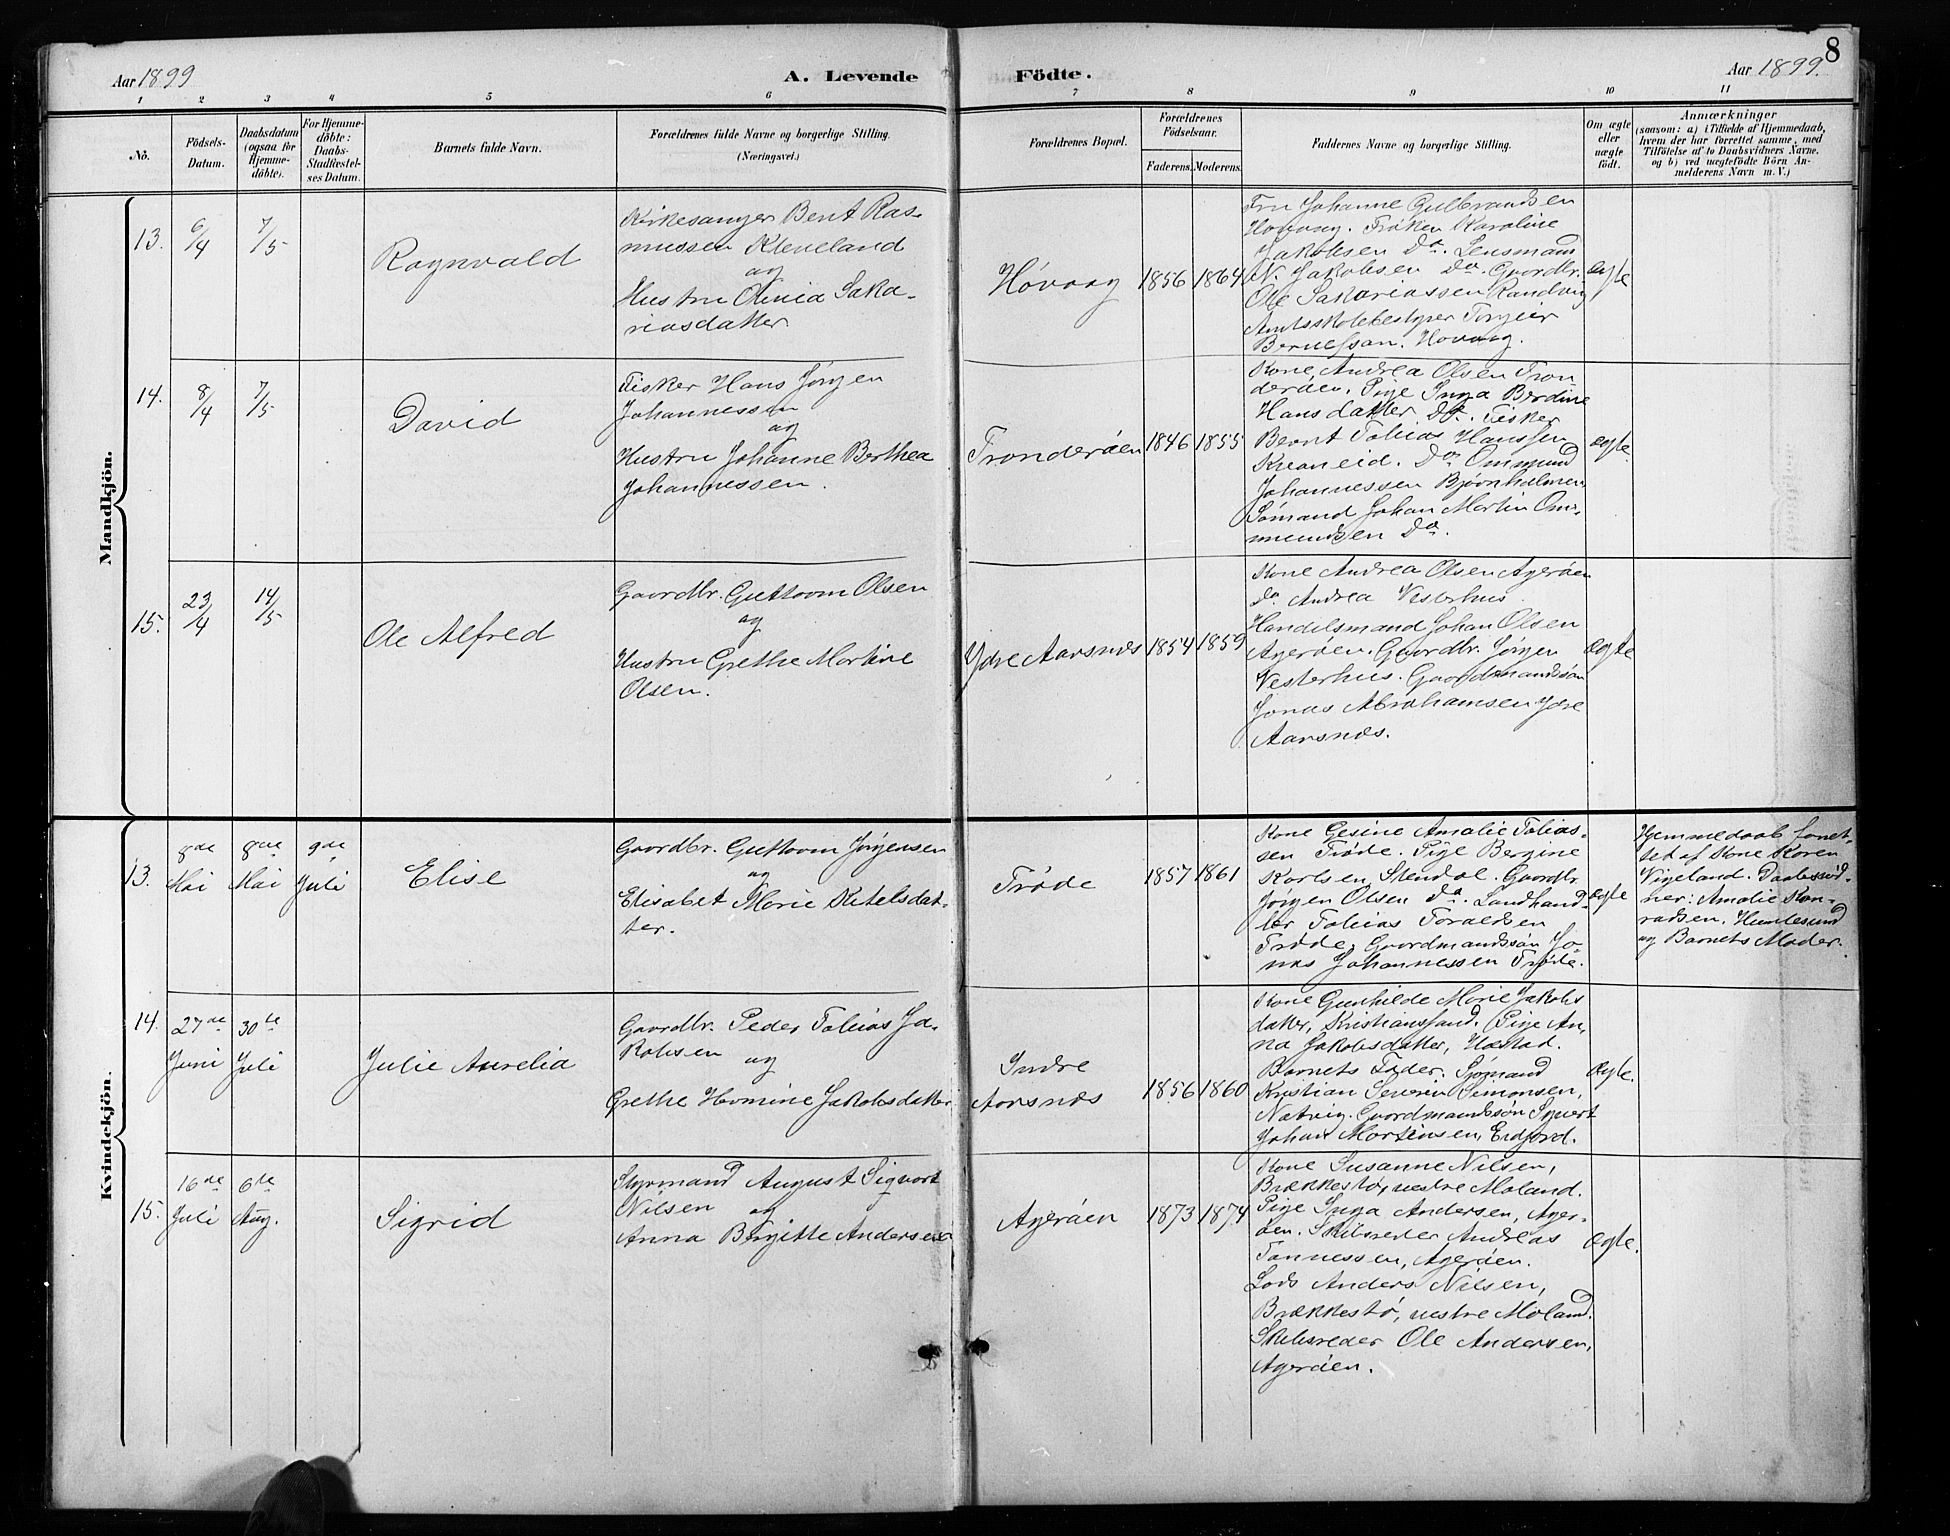 8
Aar 1899
A. Levende
Födte.
Aar 1899.
1 2 3 4 5 6 7 8 9 10 11
No.
Födsels-
Datum.
Daabsdatum
(ogsaa for
Hjemme-
döbte).
For Hjemme-
döbte:
Daabs-
Stadfæstel-
ses Datum.
Barnets fulde Navn.
Forældrenes fulde Navne og borgerlige Stilling.
(Næringsvei.)
Forældrenes Bopæl.
Forældrenes
Födselsaar.
Faderens. Moderens.
Faddernes Navne og borgerlige Stilling.
Om ægte
eller
uægte
födt.
Anmærkninger
(saasom: a) i Tilfælde af Hjemmedaab,
hvem der har forrettet samme, med
Tilföielse af to Daabsvidners Navne,
og b) ved uægtefödte Börn An-
melderens Navn m. V.)
Mandkjön.
13.
6/4
7/5
Ragnvald
Kirkesanger Bent Ras-
mussen Kleveland
og
Hustru Olivia Saka-
riasdatter
Høvaag
1856
1864
Fru Johanne Gulbrandsen
Høvaag. Frøken Karoline
Jakobsen Do. Lensmand
N. Jakobsen Do. Gaardbr.
Ole Sakariassen Randvig
Amtsskolebestyrer Torgeir
Høvaag.
ægte
14.
8/4
7/5
David
Fisker Hans Jørgen
Johannessen
og
Hustru Johanne Berthea
Johannessen.
Tronderøen
1846
1855
Kone Andrea Olsen Tron-
derøen. Pige Inga Berdine
Hansdatter Do. Fisker
Bernt Tobias Hanssen
Kvaneid. Do Ommund
Johannessen Bjørnholmen
Sømand Johan Martin Om-
mundsen Do.
ægte.
15.
23/4
14/5
Ole Alfred
Gaardbr. Guttorm Olsen
og
Hustru Grethe Martine
Olsen.
Ydre Aarsnæs
1854
1859
Kone Andrea Olsen Agerøen
Do Andrea Vesterhus.
Handelsmand Johan Olsen
Agerøen. Gaardbr. Jørgen
Vesterhus. Gaardmandssøn
Jonas Abrahamsen Ydre
Aarsnæs.
ægte
Kvindekjön.
13.
8de
Mai
8de
Mai
9de
Juli
Elise
Gaardbr. Guttorm Jørgensen
og
Elisabet Marie Ketelsdat-
ter.
Trøde
1857
1861
Kone Gesine Amalie Tobias-
sen Trøde. Pige Bergine
Karlsen, Stendal. Gaardbr.
Jørgen Olsen Do. Landhand-
ler Tobias Toraldsen
Trøde. Gaardmandssøn Jo-
nas Johannessen Trøde.
ægte
Hjemmedaab forret-
tet af Kone Karen
Vigeland. Daabsvid-
ner: Amalie Kon-
radsen, Humlesund
og Barnets Moder.
14.
27de
Juni
30te
Juli
Julie Aurelia
Gaardbr. Peder Tobias Ja-
kobsen og
Grethe Hermine Jakobsdatter
Indre
Aarsnæs
1856
1860
Kone Gunhilde Marie Jakobs
datter, Kristianssand. Pige An-
na Jakobsdatter, Hæstad.
Barnets Fader. Sjømand
Kristian Severin Simonsen,
Natvig. Gaardmandssøn Sigvert
Johan Mortensen, Eidjord.
ægte.
15.
16de
Juli
6te
Aug.
Sigrid
Styrmand August Sigvart
Nilsen og
Anna Birgitte Andersen
Agerøen
1873
1874
Kone Susanne Nilsen,
Brækkestø, vestre Moland.
Pige Inga Andersen, Ager-
øen. Skibsreder Andreas
Tønnessen, Agerøen.
Lods Anders Nilsen,
Brækkestø, vestre Moland.
Skibsreder Ole Andersen,
Agerøen.
ægte.